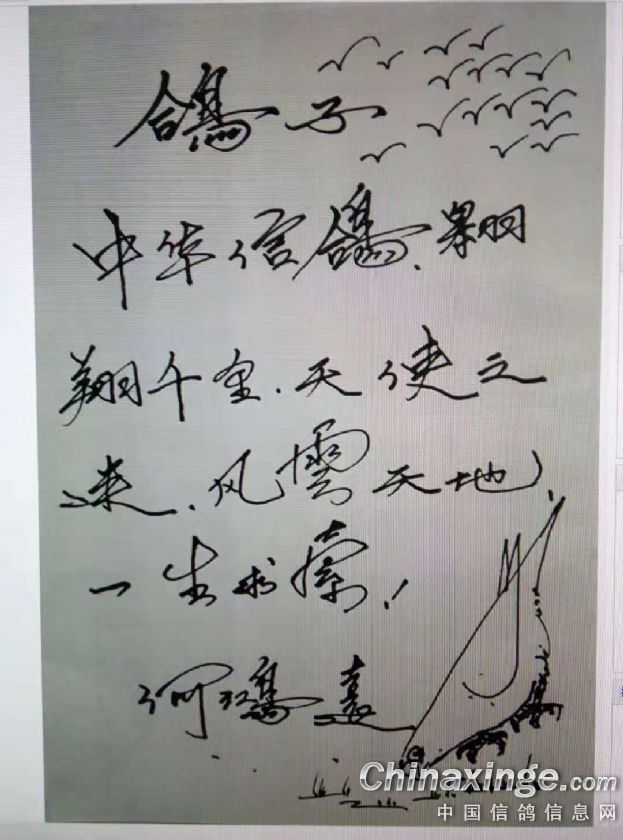 鸽子
中华信鸽、翱
翔千里、天使之
速、风雲天地,
一生求索!
Chinaxinge.com
中国信鸽信息网